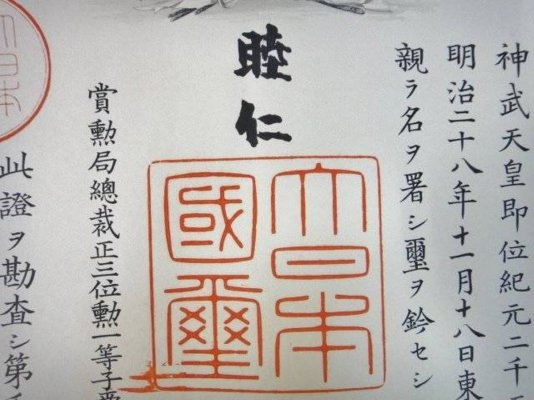 神武天皇即位紀元二千
明治二十八年十一月十八日東
親ラ名ヲ署シ璽ヲ鈐セシ
睦仁
大日本
國璽
賞勲局總裁正三位勲一等子爵
此證ヲ勘査シ第
大日本